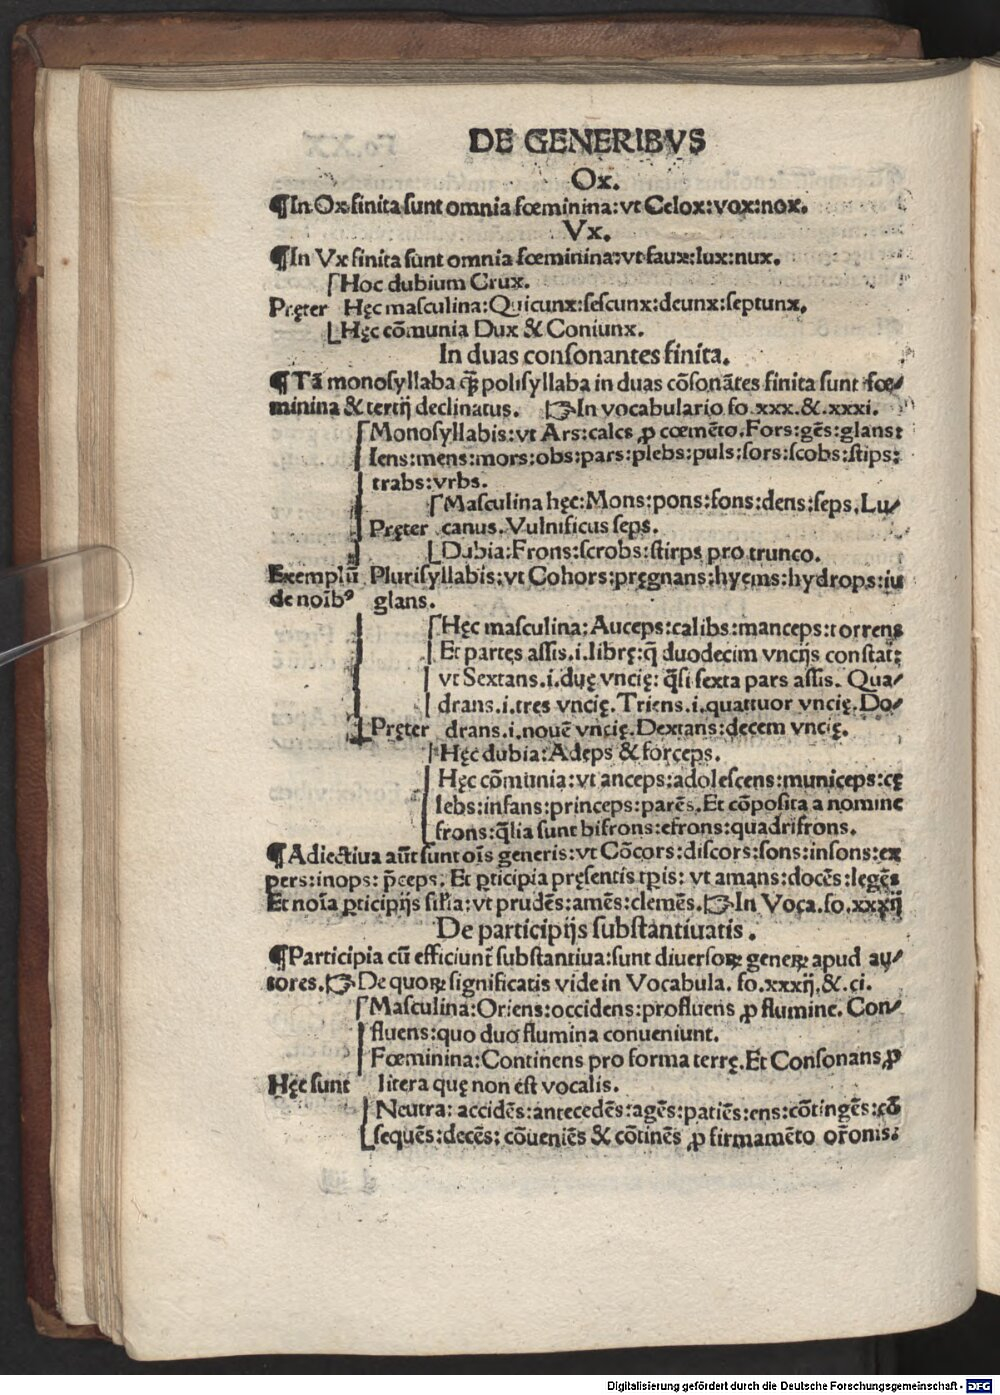 DE GENERIBVS
Ox.
¶In Ox finita sunt omnia fœminina:vt Celox:vox:nox.
Vx.
¶In Vx finita sunt omnia fœminina:vt faux:lux:nux.
Hoc dubium Crux.
Pręter Hęc masculina:Quicunx:sescunx:deunx:septunx.
Hęc cōmunia Dux & Coniunx.
In duas consonantes finita.
¶Tā monosyllaba q̄ꝫ polisyllaba in duas cōsonātes finita sunt fœ/
minina & tertij declinatus. ☞In vocabulario fo.xxx.&.xxxi.
Monosyllabis:vt Ars:calcs ꝓ cœmēto.Fors:gēs:glans:
lens:mens:mors:obs:pars:plebs:puls:sors:scobs:stips:
trabs:vrbs.
Masculina hęc:Mons:pons:fons:dens:seps.Lu/
Pręter canus.Vulnificus seps.
Dubia:Frons:scrobs:stirps pro trunco.
Exemplū Plurisyllabis:vt Cohors:pręgnans:hyems:hydrops:iu
de noīb⁹ glans.
Hęc masculina:Auceps:calibs:manceps:torrens
Et partes assis.i.librę:q̄ duodecim vncijs constat:
vt Sextans.i.duę vncię: q̄si sexta pars assis. Qua/
drans.i.tres vncię.Triens.i.quattuor vncię.Do/
Pręter drans.i.nouē vncię.Dextans:decem vncię.
Hęc dubia:Adeps & forceps.
Hęc cōmunia:vt anceps:adolescens:municeps:cę
lebs:infans:princeps:parēs.Et cōposita a nomine
frons:q̄lia sunt bifrons:efrons:quadrifrons.
¶Adiectiua aūt sunt oīs generis:vt Cōcors:discors:sons:insons:ex
pers:inops: p̄ceps. Et ꝑticipia pręsentis tꝑis: vt amans:docēs:legēs
Et noīa ꝑticipijs sił'ia:vt prudēs:amēs:clemēs.☞In Voca.fo.xxxij
De participijs substantiuatis.
¶Participia cū efficiunt̄ substantiua:sunt diuersoꝝ geneꝝ apud au/
tores.☞De quoꝝ significatis vide in Vocabula. fo.xxxij.&.ci.
Masculina:Oriens:occidens:profluens ꝓ flumine. Con/
fluens:quo duo flumina conueniunt.
Fœminina:Continens pro forma terrę.Et Consonans ꝓ
Hęc sunt litera quę non est vocalis.
Neutra: accidēs:antecedēs:agēs:patiēs:ens:cōtingēs:cō
sequēs:decēs: cōueniēs & cōtinēs ꝓ firmamēto or̄onis:
Digitalisierung gefördert durch die Deutsche Forschungsgemeinschaft - DFG